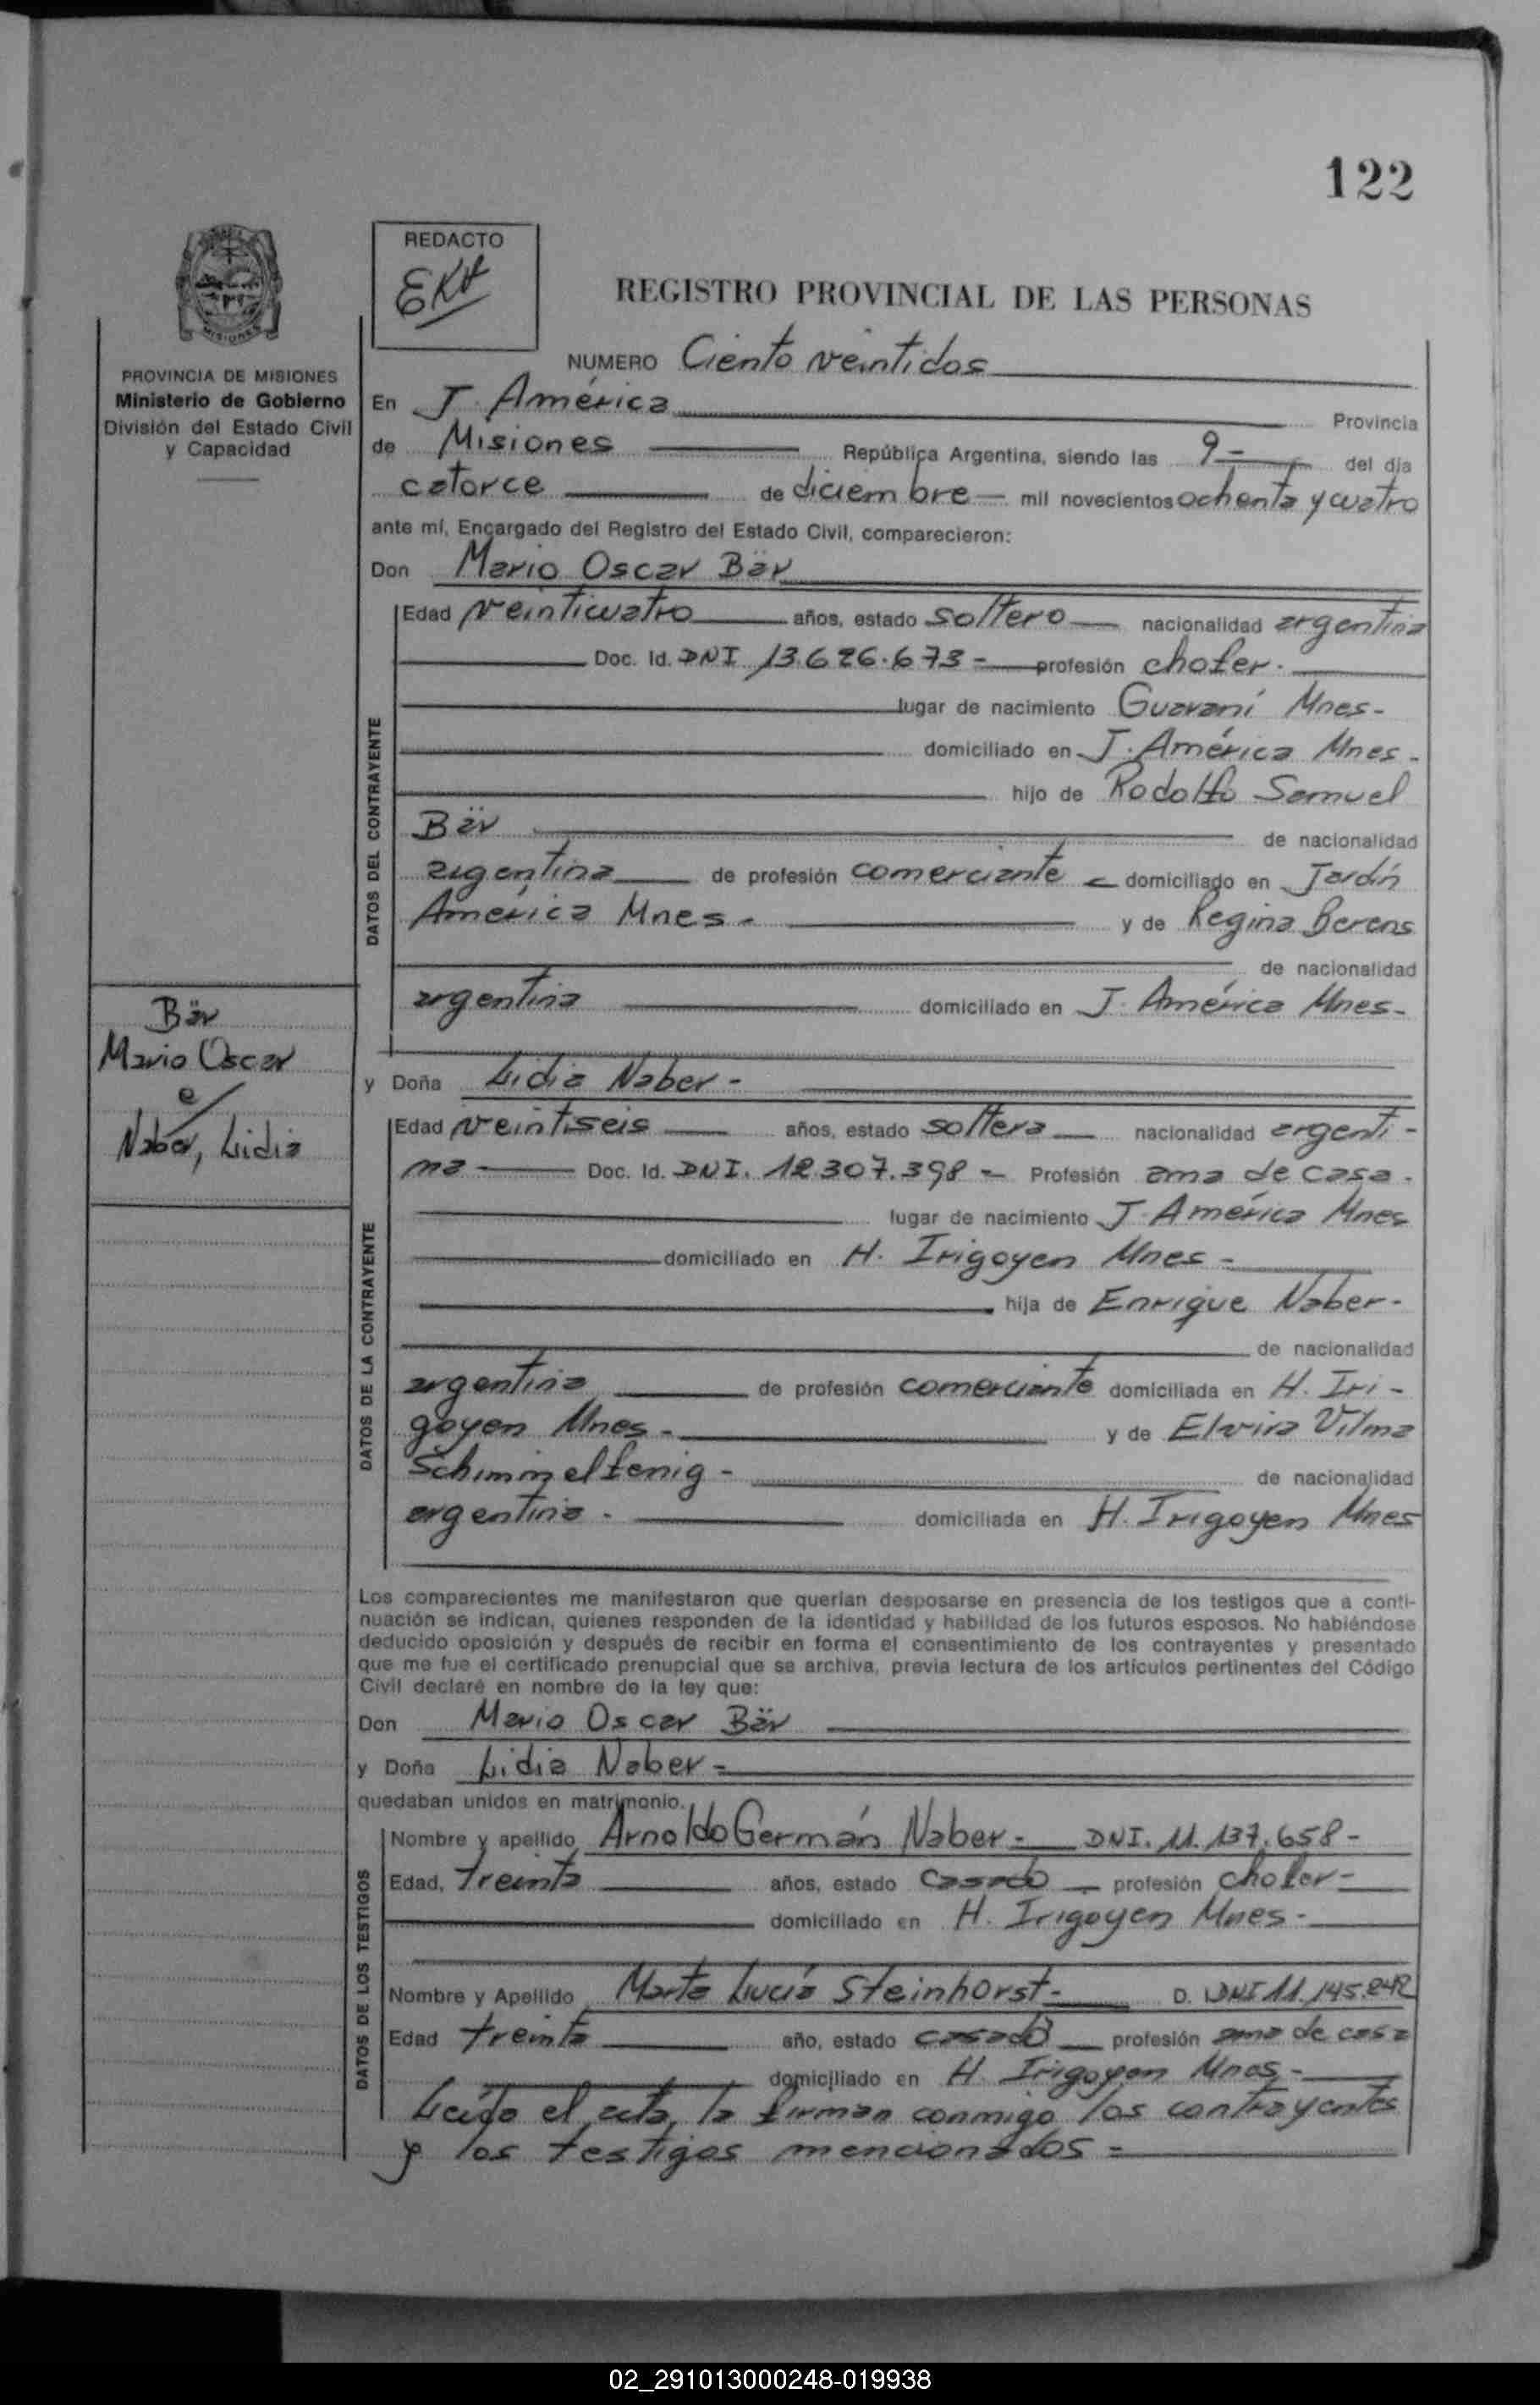 122
REDACTO
EKA
REGISTRO PROVINCIAL DE LAS PERSONAS
MISIONES
PROVINCIA DE MISIONES
Ministerio de Gobierno
División del Estado Civil
y Capacidad
NUMERO Ciento veintidos
En J. América Provincia
de Misiones República Argentina, siendo las 9- del día
catorce de diciembre mil novecientos ochenta y cuatro
ante mí, Encargado del Registro del Estado Civil, comparecieron:
Don Mario Oscar Bär
DATOS DEL CONTRAYENTE
Edad veinticuatro años, estado soltero nacionalidad argentina
Doc. Id. DNI 13.626.673- profesión chofer.
lugar de nacimiento Guaraní Mnes-
domiciliado en J. América Mnes-
hijo de Rodolfo Samuel
Bär de nacionalidad
argentina de profesión comerciante - domiciliado en Jardín
América Mnes- y de Regina Berens
de nacionalidad
argentina domiciliado en J. América Mnes-
Bär
Mario Oscar
e/
Naber, Lidia
y Doña Lidia Naber-
DATOS DE LA CONTRAYENTE
Edad veintiseis años, estado soltera nacionalidad argenti-
na Doc. Id. DNI. 12.307.398- Profesión ama de casa.
lugar de nacimiento J. América Mnes
domiciliado en H. Irigoyen Mnes-
hija de Enrique Naber-
de nacionalidad
argentina de profesión comerciante domiciliada en H. Iri-
goyen Mnes- y de Elvira Vilma
Schimmelfenig- de nacionalidad
argentina. domiciliada en H. Irigoyen Mnes
Los comparecientes me manifestaron que querían desposarse en presencia de los testigos que a conti-
nuación se indican, quienes responden de la identidad y habilidad de los futuros esposos. No habiéndose
deducido oposición y después de recibir en forma el consentimiento de los contrayentes y presentado
que me fue el certificado prenupcial que se archiva, previa lectura de los artículos pertinentes del Código
Civil declaré en nombre de la ley que:
Don Mario Oscar Bär
y Doña Lidia Naber-
quedaban unidos en matrimonio.
DATOS DE LOS TESTIGOS
Nombre y apellido Arnoldo Germán Naber- DNI. 11.137.658-
Edad, treinta años, estado casado profesión chofer-
domiciliado en H. Irigoyen Mnes-
Nombre y Apellido Marta Lucía Steinhorst- D. DNI 11.145.242
Edad treinta año, estado casado profesión ama de casa
domiciliado en H. Irigoyen Mnes-
Leída el acta, la firman conmigo los contrayentes
y los testigos mencionados=
02_291013000248-019938